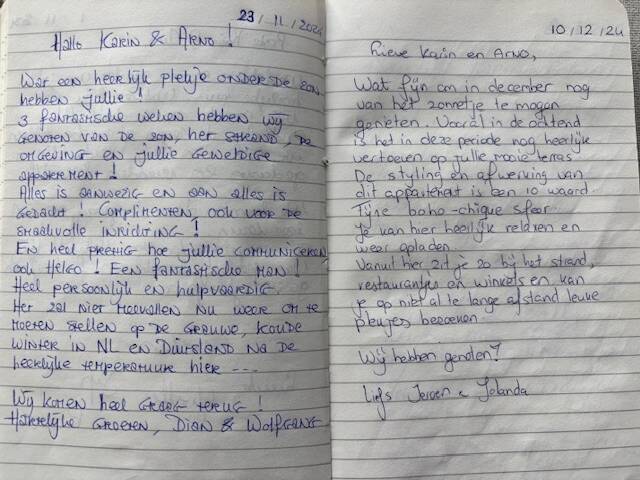 23/11/2024
Hallo Karin & Arno!
Wat een heerlijk plekje onder de zon
hebben jullie!
3 fantastische weken hebben wij
genoten van de zon, het strand, de
omgeving en jullie geweldige
appartement!
Alles is aanwezig en aan alles is
gedacht! Complimenten, ook voor de
smaakvolle inrichting!
En heel prettig hoe jullie communiceren
ook Heleo! Een fantastische man!
Heel persoonlijk en hulpvaardig.
Het zal niet meevallen nu weer om te
moeten stellen op de grauwe, koude
winter in NL en Duitsland na de
heerlijke temperatuur hier ---
Wij komen heel graag terug!
Hartelijke groeten, Dian & Wolfgang
10/12/24
Lieve Karin en Arno,
Wat fijn om in december nog
van het zonnetje te mogen
genieten. Vooral in de ochtend
is het in deze periode nog heerlijk
vertoeven op jullie mooie terras.
De styling en afwerking van
dit appartement is een 10 waard.
Fijne boho-chique sfeer.
Je kan hier heerlijk relaxen en
weer opladen.
Vanuit hier zit je zo bij het strand,
restaurantjes en winkels en kan
je op niet al te lange afstand leuke
plekjes bezoeken.
Wij hebben genoten!
Liefs Jeroen & Jolanda